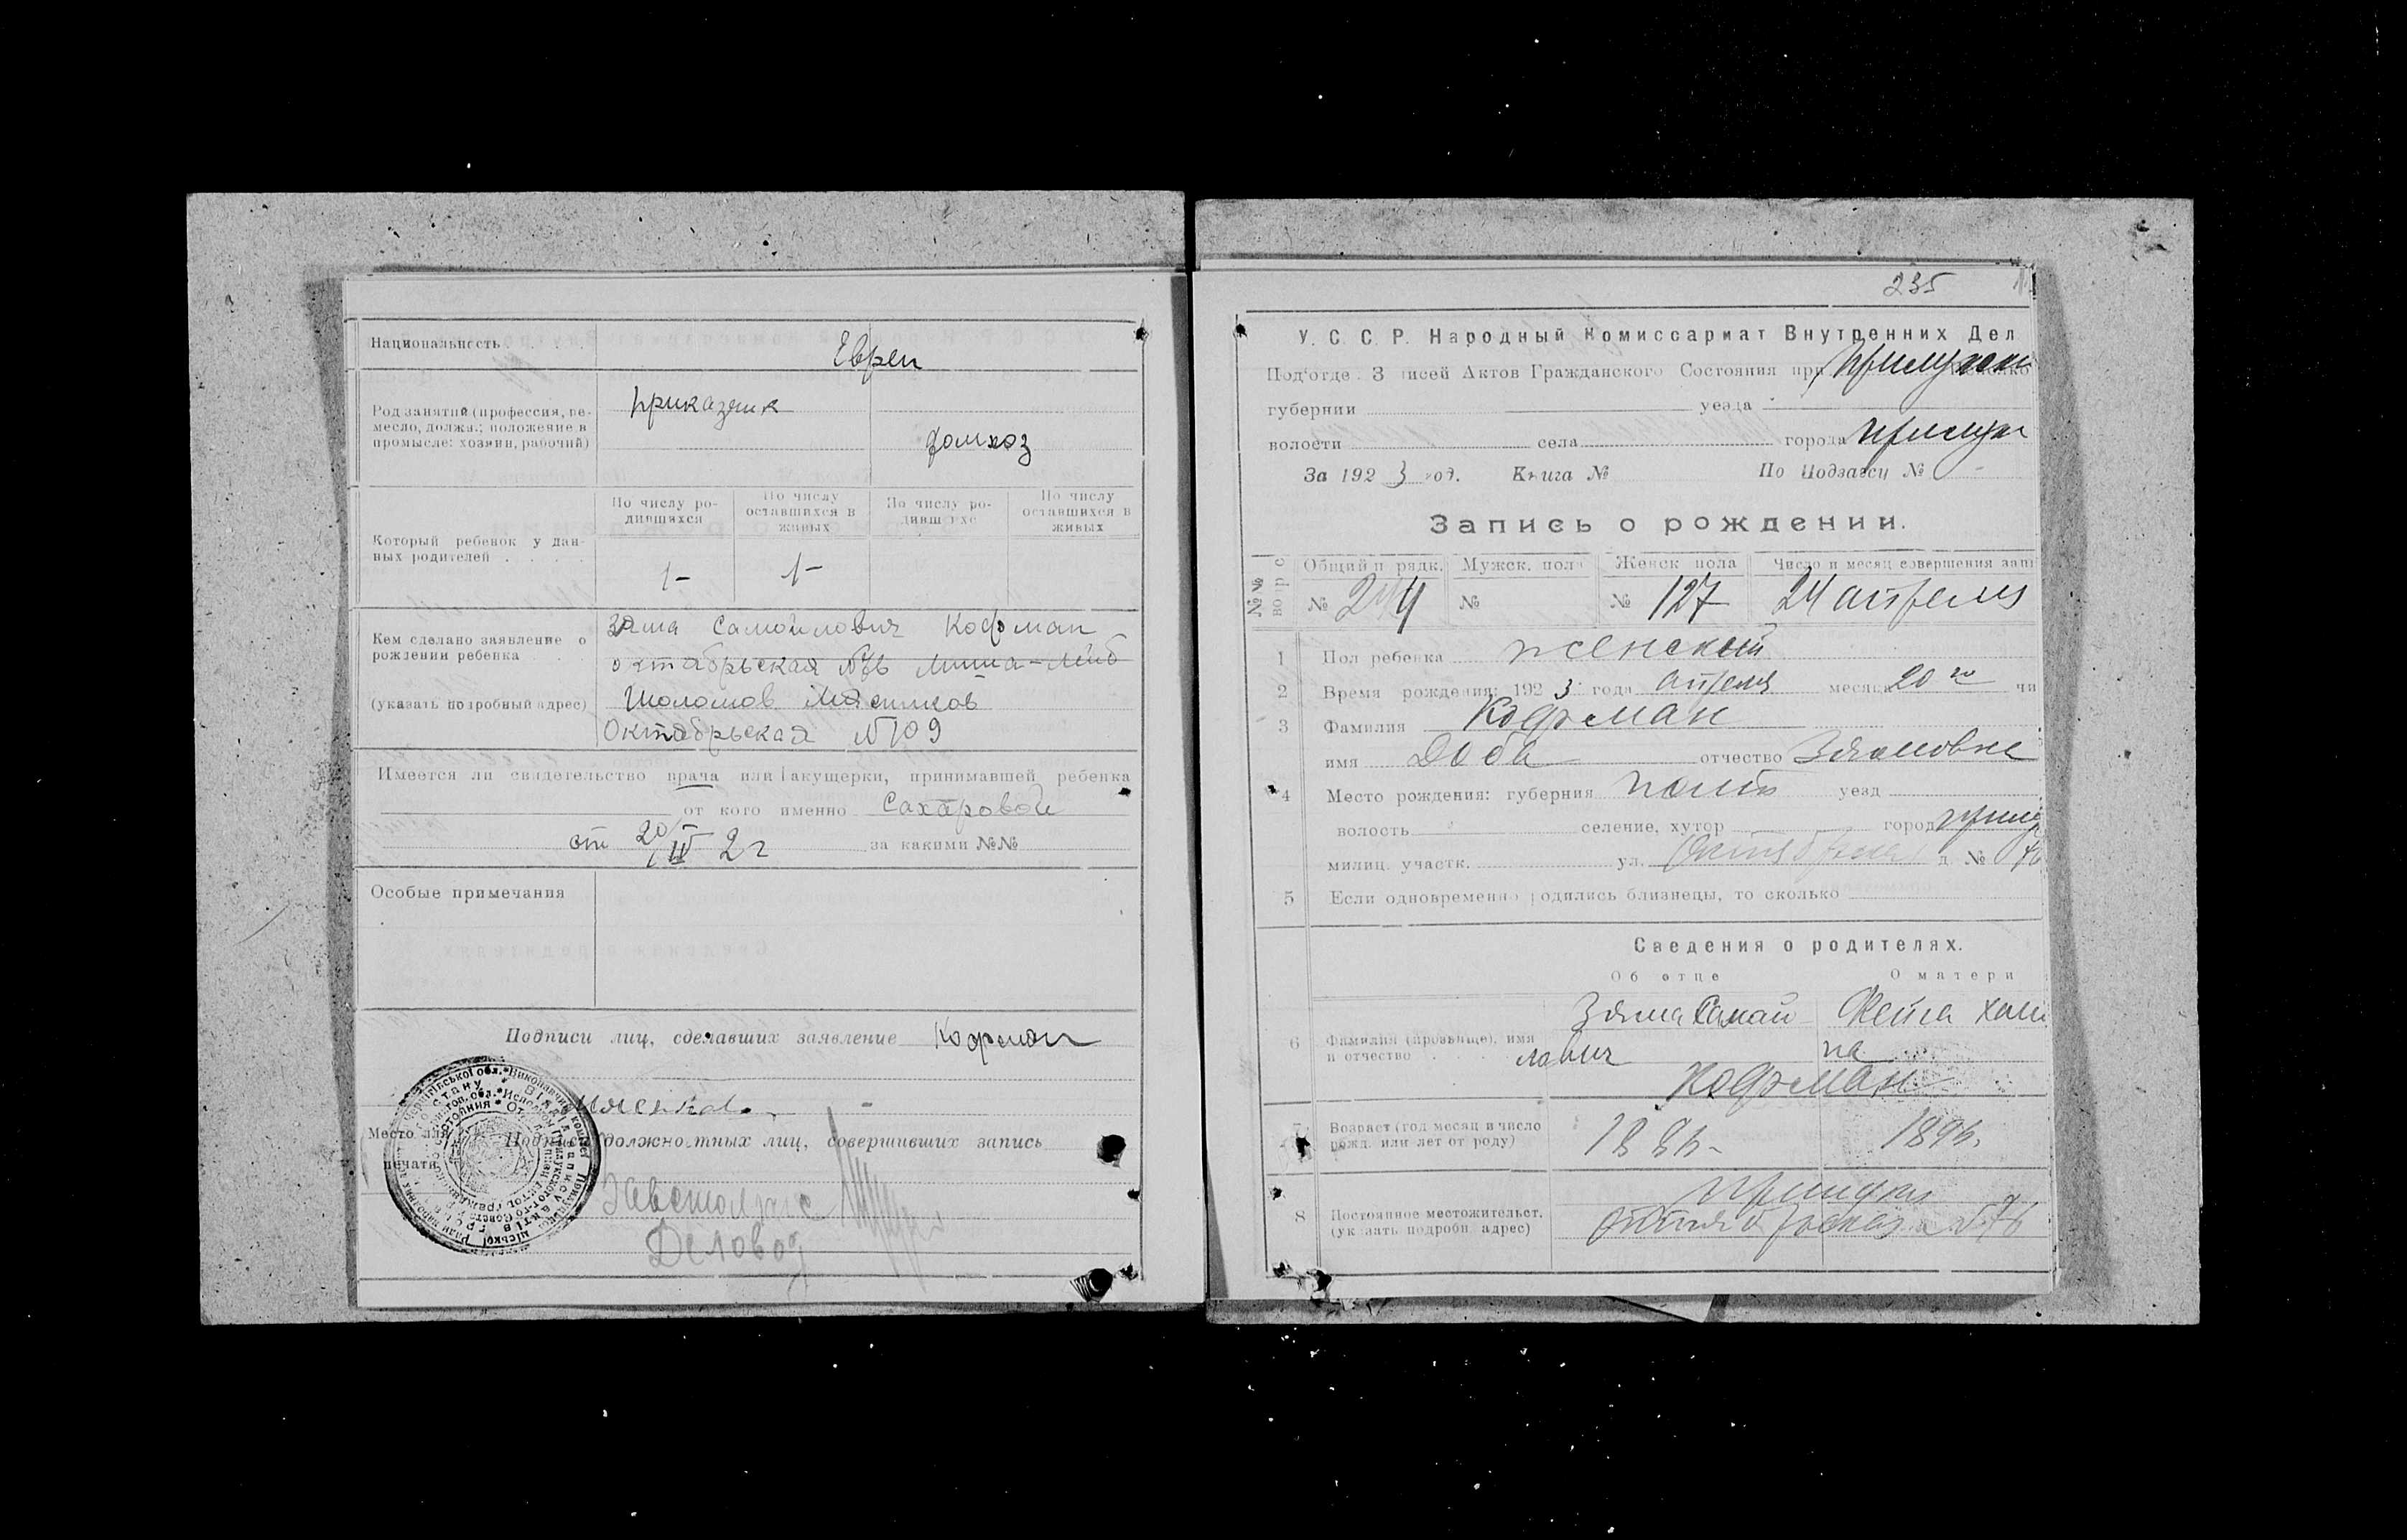 Национальность
Евреи
Род занятий (профессия, ре-
месло, должн.; положение в
промысле: хозяин, рабочий)
приказчик
домхоз
Который ребенок у дан-
ных родителей
По числу ро-
дившихся
По числу
оставшихся в
живых
По числу ро-
дивш хс
По числу
оставшихся в
живых
1-
1-
Кем сделано заявление о
рождении ребенка
(указать подробный адрес)
Зяма Самойлович Кофман
октябрьская №76 Миша-Лейб
Шоломов Мясников
Октябрьская №109
Имеется ли свидетельство врача или акушерки, принимавшей ребенка
от кого именно Сахаровой
от 20/IV 2 г за какими №№
Особые примечания
Подписи лиц, сделавших заявление Кофман
Место для
печати
Подписи должностных лиц, совершивших запись
Деловод
235
У. С. С. Р. Народный Комиссариат Внутренних Дел
Под'отде. З писей Актов Гражданского Состояния при Прилукском
губернии уезда
волости села города Прилуки
За 1923 год. Книга № По Подзагсу № -
Запись о рождении.
№№
Общий п рядк. Мужск. пол Женск пола Число и месяц совершения зап
№ 244 № № 127 24 апреля
1 Пол ребенка женский
2 Время рождения: 1923 года апреля месяца 20 го чи
3 Фамилия Кофман
имя Доба отчество Зямовна
4 Место рождения: губерния Полт уезд
волость селение, хутор город Прилу
милиц. участк. ул. Октябрьская д. № 76
5 Если одновременно родились близнецы, то сколько
Сведения о родителях.
Об отце О матери
6 Фамилия (прозвище), имя
и отчество
Зяма Самой-
лович
Фейга Хаи
на
Кофман
7 Возраст (год месяц и число
рожд. или лет от роду)
1886- 1896.
8 Постоянное местожительст.
(ук зать подробн. адрес)
Прилуки
Октябрьская №76